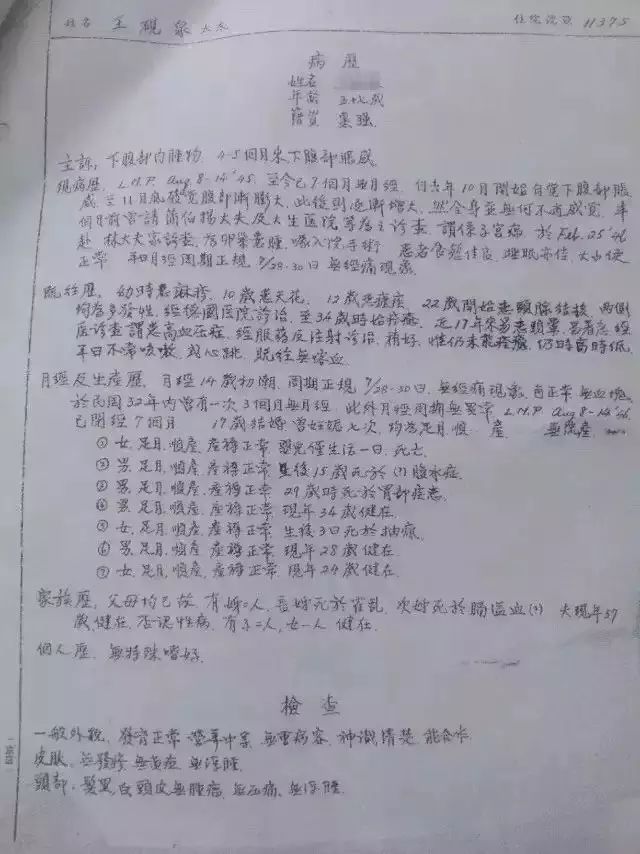 姓名 王硯泉太太 住院號頭 11375
病歷
姓名
年齡 五十七歲
籍貫 棗强
主訴, 下腹部內腫物 4-5個月來下腹部脹感
現病歷, L.M.P. Aug 8-14 '45, 至今已7個月無月經, 自去年10月開始自覺下腹部脹
感, 至11月底發覺腹部漸膨大, 此後則逐漸增大, 然全身並無何不適感覺, 事
何年前曾請蕭伯揚大夫及大生医院等為主診查, 謂係子宮瘤 於Feb. 25 '46
赴 林大夫家診查, 為卵巢囊腫, 囑入院手術 患者食慾佳良, 睡眠亦佳, 大小便
正常 平日月經周期正規 7/28-30日 無經痛現象
既往歷, 幼時患麻疹, 10歲患天花, 12歲患瘧疾, 22歲開始患頸腺結核, 兩側
均為多發性, 經德國医院診治, 至34歲時始痊癒, 近17年來常患頭暈, 曾者
医診查謂患高血压症, 經服藥及注射診治, 稍好, 惟仍未能痊癒, 仍時高時低,
平日不常咳嗽 或心跳, 既往無嘔血
月經及生產歷, 月經14歲初潮, 周期正規 7/28-30日, 無經痛現象, 色正常 無血塊
於民國32年內曾有一次3個月無月經, 此外月經周期無異常 L.M.P. Aug 8-14 '46
已閉經7個月 17歲結婚 曾妊娠七次, 均為足月順產 無流產
① 女, 足月, 順產, 產褥正常 嬰兒僅生活一日, 死亡
② 男, 足月, 順產, 產褥正常 生後15歲死於(?)腹水症
③ 男, 足月, 順產, 產褥正常 29歲時死於胃部症患
④ 男, 足月, 順產, 產褥正常 現年34歲健在
⑤ 女, 足月, 順產, 產褥正常 生後3日死於抽瘋
⑥ 男, 足月, 順產, 產褥正常 現年28歲健在
⑦ 女, 足月, 順產, 產褥正常 現年24歲健在
家族歷, 父母均已故, 有姊二人, 長姊死於霍亂, 次姊死於腦溢血(?) 夫現年57
歲, 健在, 否認性病, 有子二人, 女一人 健在
個人歷, 無特殊嗜好
檢查
一般外觀, 發育正常 營養中等, 無重病容, 神識清楚, 能合作
皮膚, 無發疹 無黃疸, 無浮腫
頭部, 髮黑白 頭皮無腫瘤, 無压痛, 無浮腫